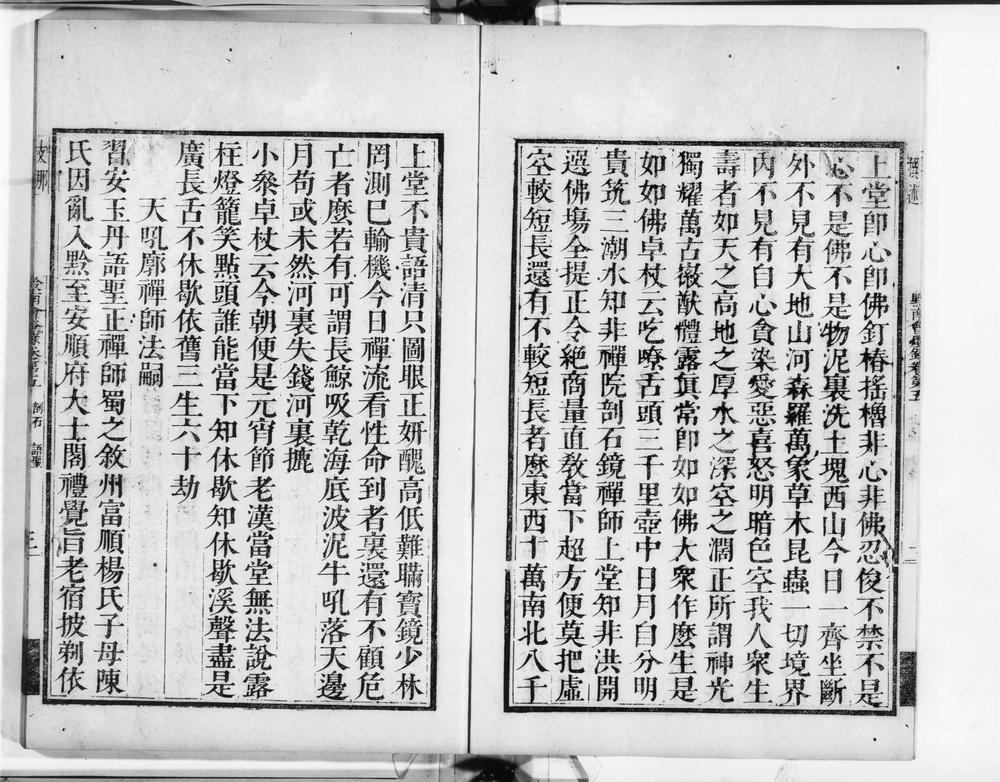 上堂卽心卽佛釘樁搖櫓非心非佛忍俊不禁不是
心不是佛不是物泥裏洗土塊西山今日一齊坐斷
外不見有大地山河森羅萬象草木昆蟲一切境界
內不見有自心貪染愛惡喜怒明暗色空我人衆生
壽者如天之高地之厚水之深空之濶正所謂神光
獨耀萬古徽猷體露眞常卽如如佛大衆作麽生是
如如佛卓杖云吃嘹舌頭三千里壺中日月自分明
貴筑三潮水知非禪院剖石鏡禪師上堂知非洪開
選佛塲全提正令絶商量直敎當下超方便莫把虛
空較短長還有不較短長者麽東西十萬南北八千
上堂不貴語淸只圖眼正妍醜高低難瞞寶鏡少林
罔測巳輸機今日禪流看性命到者裏還有不顧危
亡者麽若有可謂長鯨吸乾海底波泥牛吼落天邊
月苟或未然河裏失錢河裏摝
小叅卓杖云今朝便是元宵節老漢當堂無法說露
柱燈籠笑點頭誰能當下知休歇知休歇溪聲盡是
廣長舌不休歇依舊三生六十劫
天吼廓禪師法嗣
習安玉丹語聖正禪師蜀之敘州富順楊氏子母陳
氏因亂入黔至安順府大士閣禮覺旨老宿披剃依